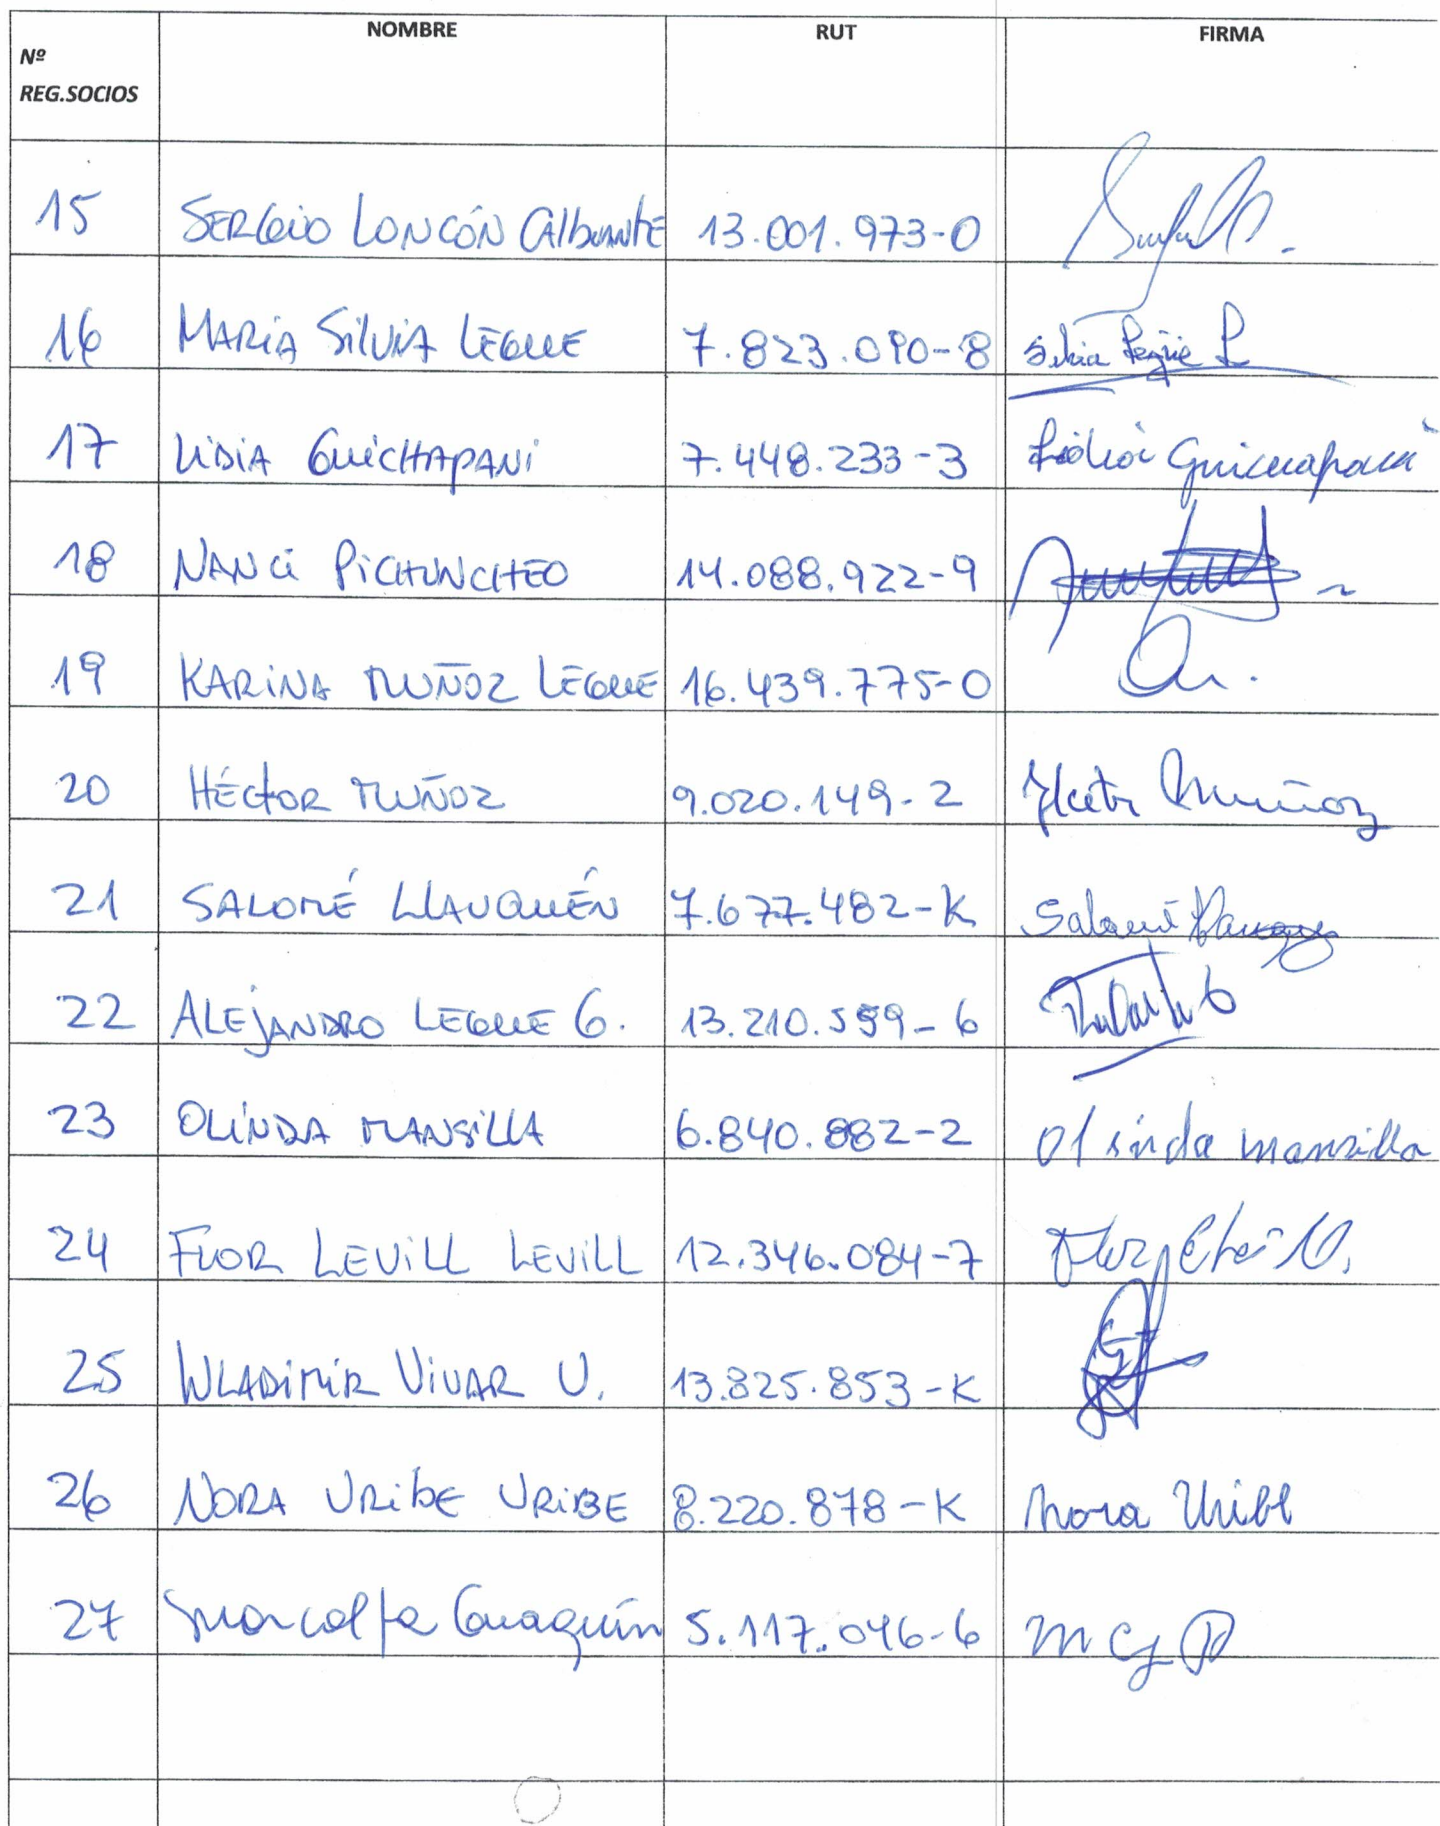 Nº NOMBRE RUT FIRMA
REG.SOCIOS
15 SERGIO LONCÓN 13.001.973-0
16 MARÍA SILVIA LEGUE 7.823.090-8 Silvia Legue L
17 LIDIA GUICHAPANI 7.448.233-3 Lidia Guichapani
18 NANCI PICHUNCHEO 14.088.922-9
19 KARINA MUÑOZ LEGUE 16.439.775-0
20 HÉCTOR MUÑOZ 9.020.149-2 Hector Muñoz
21 SALOMÉ LLAUQUÉN 7.677.482-K Salomé
22 ALEJANDRO LEGUE G. 13.210.559-6
23 OLINDA MANSILLA 6.840.882-2 Olinda mansilla
24 FLOR LEVILL LEVILL 12.346.084-7 Flor
25 WLADIMIR VIVAR U. 13.825.853-K
26 NORA URIBE URIBE 8.220.878-K Nora Uribe
27 Marcolfa Guaquín 5.117.046-6 M G P